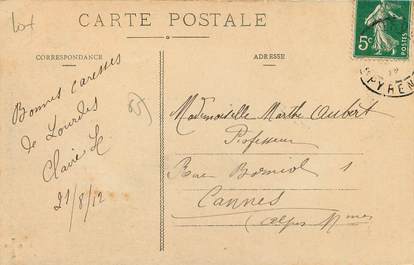 lot
CARTE POSTALE
CORRESPONDANCE
ADRESSE
5c
POSTES
PYREN
65
Bonnes caresses
de Lourdes
Claire H
21/8/12
Mademoiselle Marthe Aubert
Professeur
Rue 1
Cannes
(Alpes Mmes